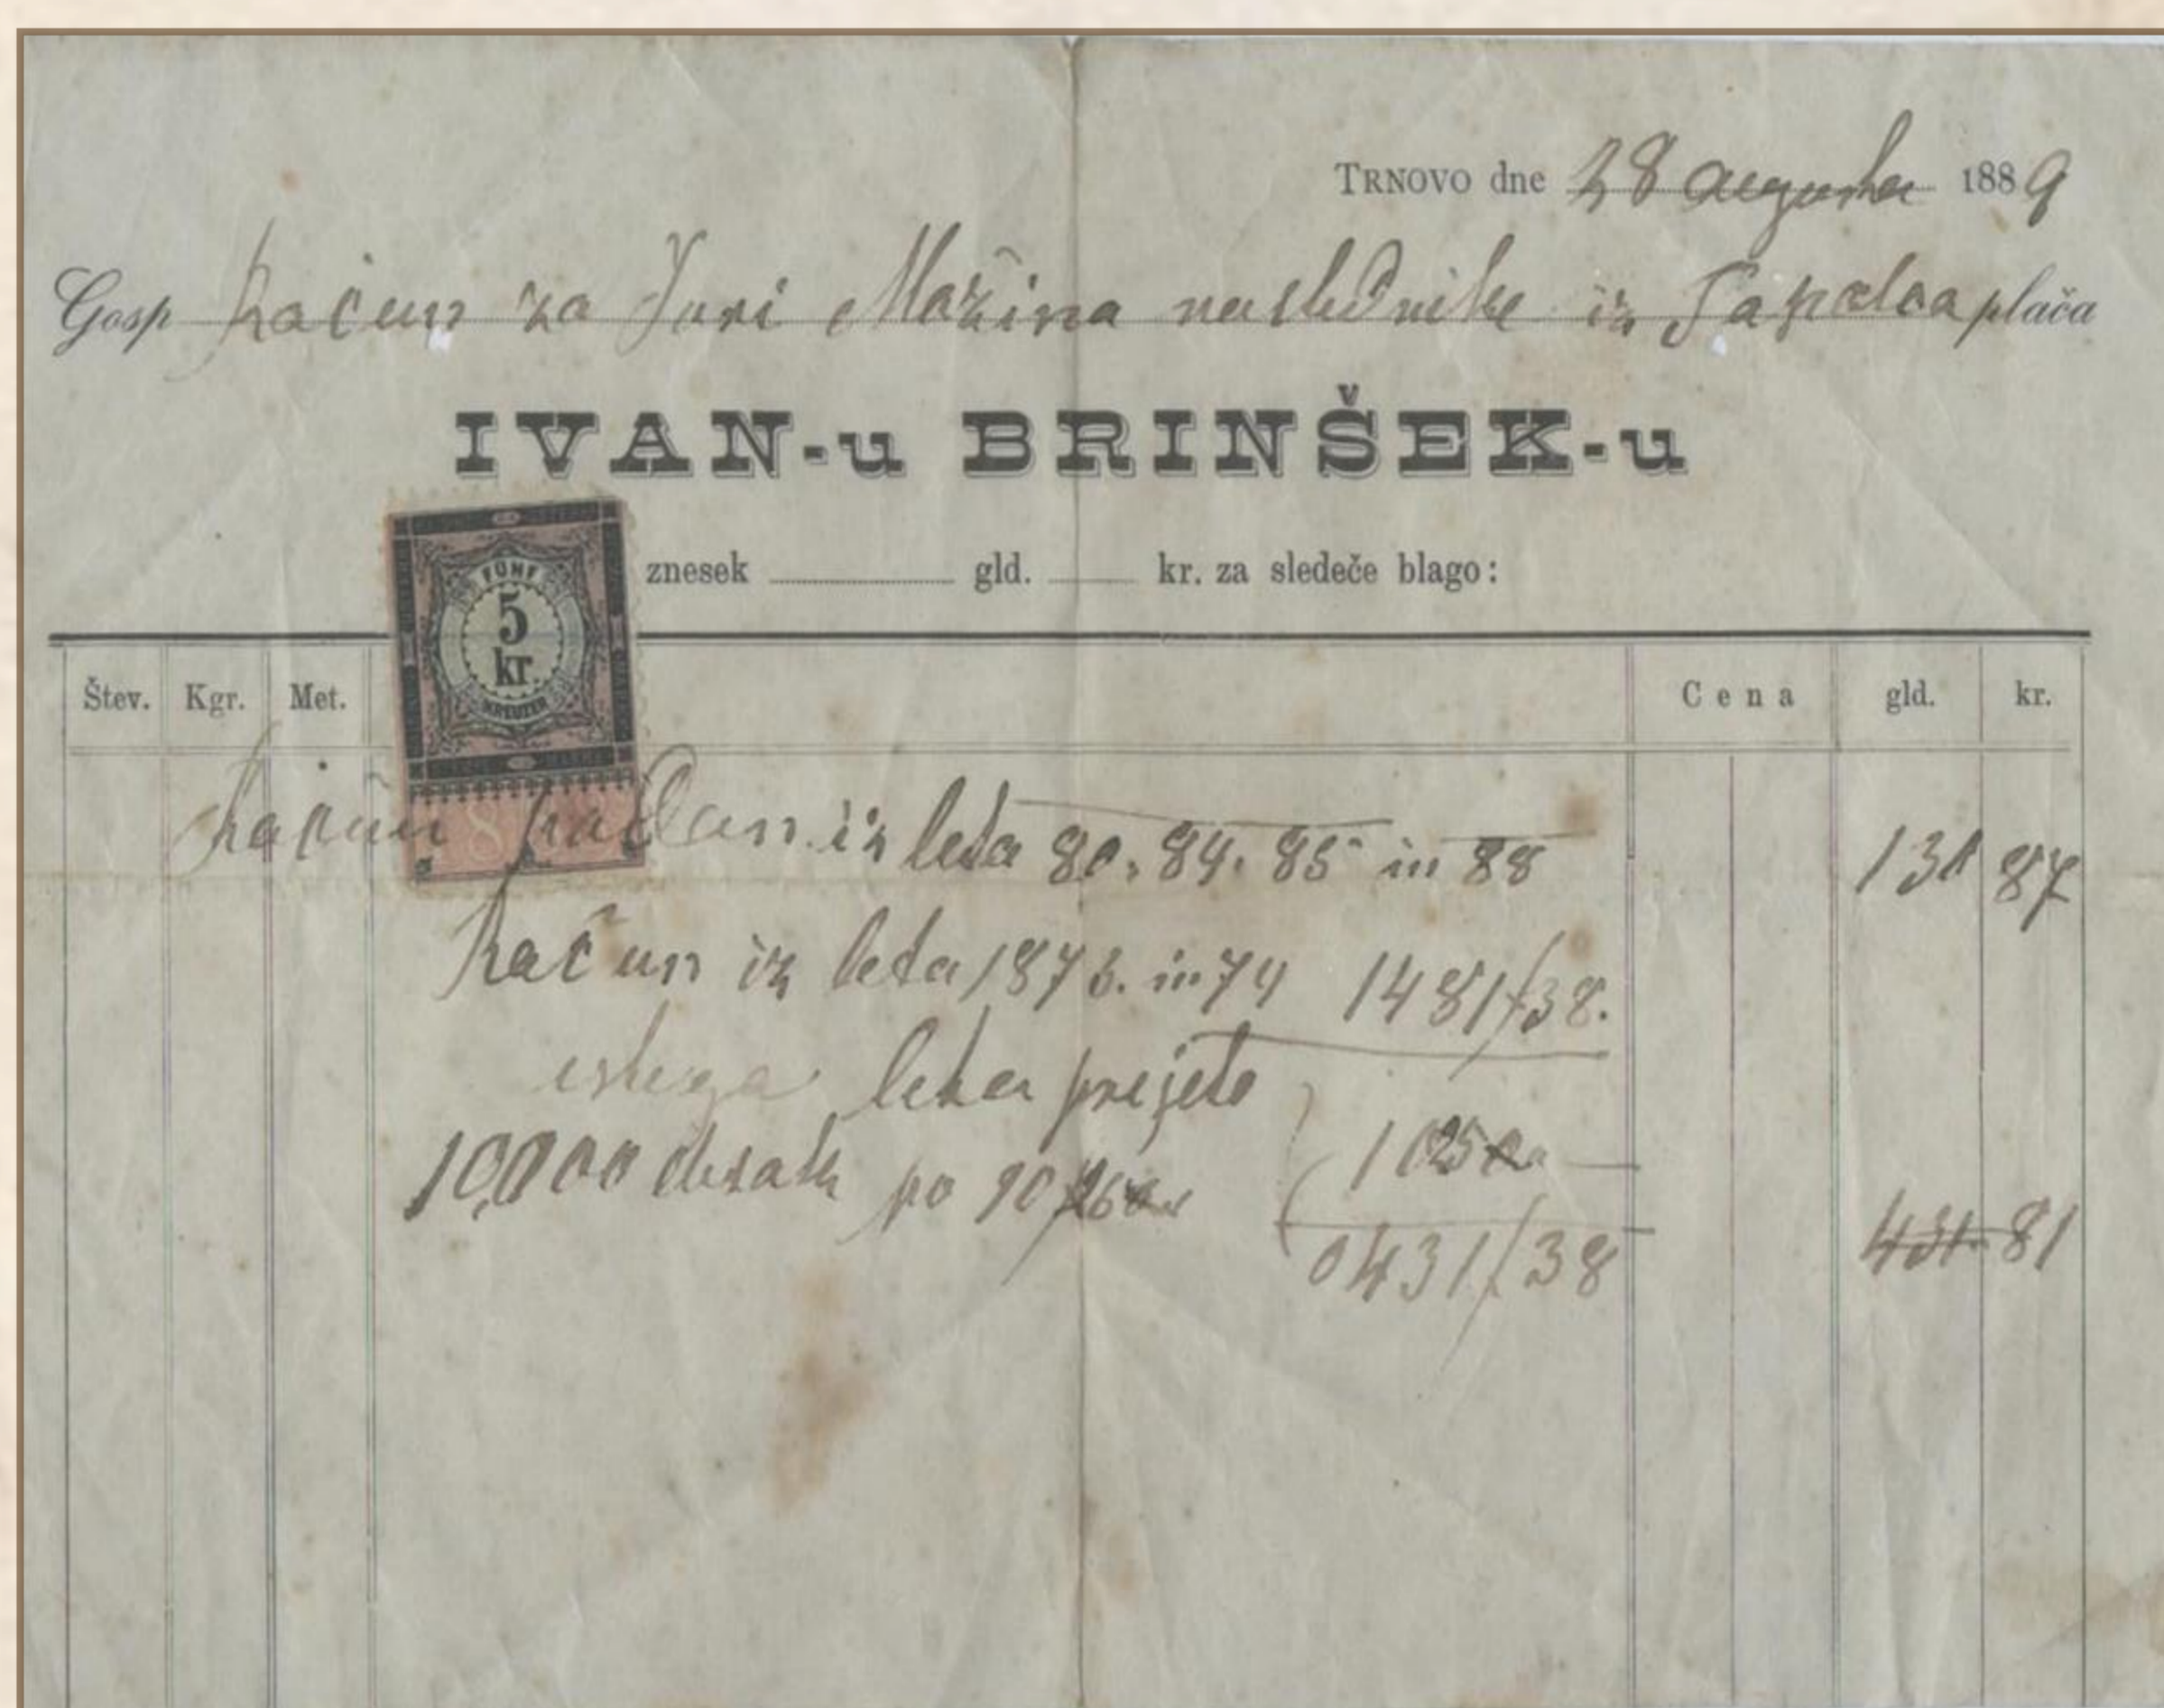 TRNOVO dne 28 augusta 1889
Gosp Račun za Juri Mažina naslednike iz plača
IVAN-u BRINŠEK-u
znesek gld. kr. za sledeče blago:
FÜNF
5
kr.
KREUZER
Štev. Kgr. Met. Cena gld. kr.
Račun iz leta 80. 84. 85 in 88 131 87
Račun iz leta 1873. in 74 1481/38.
istega leta prejeto
10,000 desak po 90
0431/38 431 81